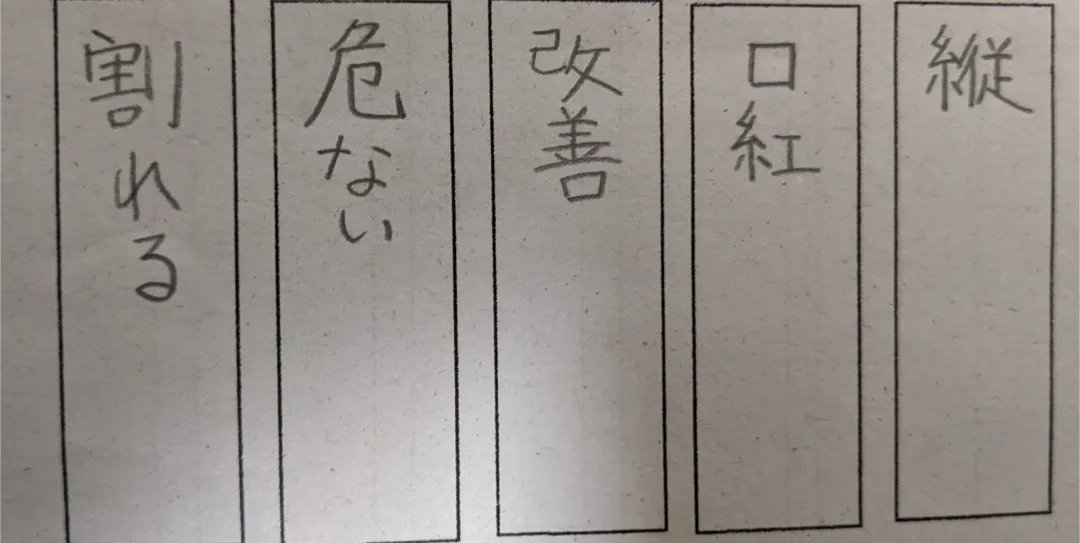 縦
口紅
改善
危ない
割れる